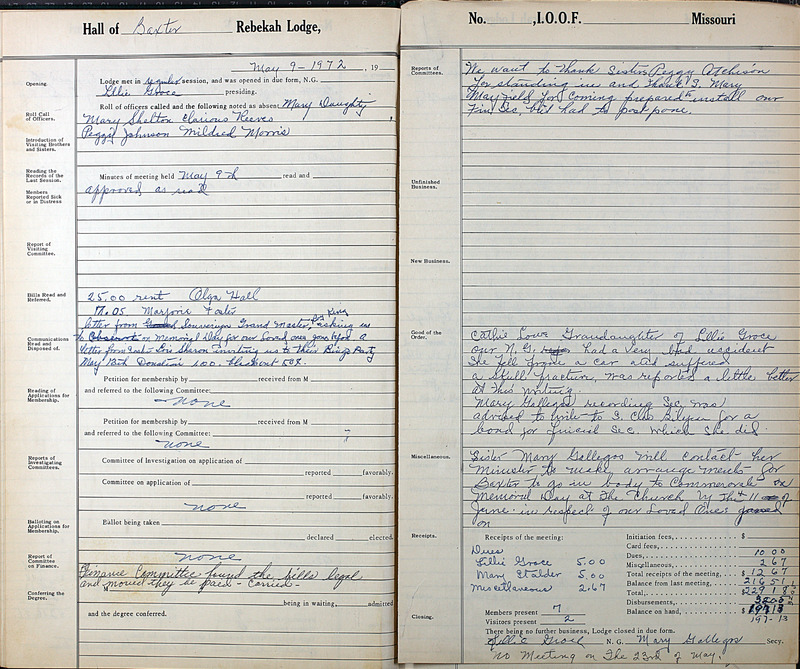 Hall of Baxter Rebekah Lodge,
May 9 - 1972, 19
Opening. Lodge met in regular session, and was opened in due form, N.G.
Lillie Groce presiding.
Roll of officers called and the following noted as absent Mary Daughty
Roll Call of Officers. Mary Shelton Clarious Reeves
Peggy Johnson Mildred Morris
Introduction of Visiting Brothers and Sisters.
Reading the Records of the Last Session. Minutes of meeting held May 9th read and
Members Reported Sick or in Distress approved as read
Report of Visiting Committee.
Bills Read and Referred. 25.00 rent Olga Hall
17.05 Marjorie Foster
letter from Souvereign Grand Master, King asking us
Communications Read and Disposed of. to Observe on Memorial Day for our Loved ones
letter from East Lou Sharon inviting us to their Bingo Party
May 13th Donation 1.00
Reading of Applications for Membership. Petition for membership by received from M
and referred to the following Committee:
none
Petition for membership by received from M
and referred to the following Committee:
none
Reports of Investigating Committees. Committee of Investigation on application of
reported favorably.
Committee on application of
reported favorably.
none
Balloting on Applications for Membership. Ballot being taken
declared elected.
none
Report of Committee on Finance. Finanie Committee found the bills legal
and moved they be paid - Carried -
M
Conferring the Degree. being in waiting, admitted
and the degree conferred.
No. , I.O.O.F. Missouri
Reports of Committees. We want to thank Sister Peggy Atchison
for standing in and thank S. Mary
Mayfield for coming prepared to install our
Fin Sec, but had to postpone.
Unfinished Business.
New Business.
Good of the Order. Cathie Lowe Grandaughter of Lillie Groce
our N.G. had a very bad accident
She fell from a car and suffered
a skull fraction, was reported a little better
at this writing.
Mary Gallegos recording Sec. was
advised to write to S. for a
bond for finicial Sec. which she did.
Miscellaneous. Sister Mary Gallegos will contact her
Minister to make arrangements for
Baxter to go in body to Commerorate on
Memorial Day at the Church by the 11 of
June in respect of our Loved Ones
on
Receipts. Receipts of the meeting:
Dues
Lillie Groce 5.00
Mary Etalder 5.00
Miscellaneous 2.67
Initiation fees, $
Card fees,
Dues, 10 00
Miscellaneous, 2 67
Total receipts of the meeting, $ 12 67
Balance from last meeting, 216 51
Total, $ 229 18
Disbursements,
Balance on hand, 197 13
197-13
Members present 7
Visitors present 2
Closing. There being no further business, Lodge closed in due form.
Lillie Groce N.G. Mary Gallegos Secy.
No Meeting on The 23rd of May.